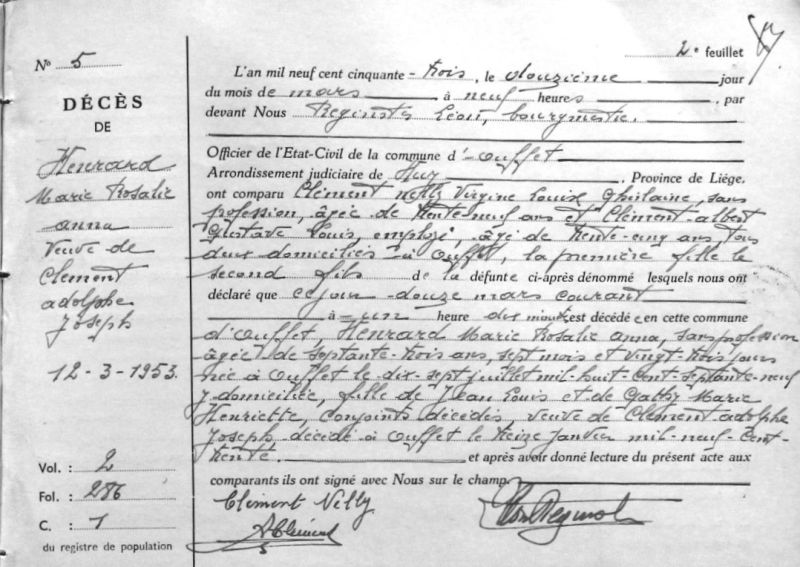 2e feuillet
87
No 5
DÉCÈS
DE
Henrard
Marie Rosalie
anna
Veuve de
Clement
adolphe
Joseph
12-3-1953.
Vol. : 2
Fol. : 286
C. : 1
du registre de population
L'an mil neuf cent cinquante-trois, le douzième jour
du mois de mars à neuf heures, par
devant Nous Reginster Léon, bourgmestre.
Officier de l'Etat-Civil de la commune d'Ouffet
Arrondissement judiciaire de Huy, Province de Liége,
ont comparu Clément Nelly Virginie Louise Ghislaine, sans
profession, âgée de trente-neuf ans et Clément albert
Gustave Louis, employé, âgé de trente-cinq ans, tous
deux domiciliés à Ouffet, la première fille le
second fils de la défunte ci-après dénommé lesquels nous ont
déclaré que ce jour douze mars courant
à une heure dix minutes est décédée en cette commune
d'Ouffet, Henrard Marie Rosalie anna, sans profession
âgée de septante-trois ans, sept mois et vingt-trois jours
née à Ouffet le dix-sept juillet mil-huit-cent-septante-neuf
y domiciliée, fille de Jean Louis et de Marie
Henriette, conjoints décédés, veuve de Clément adolphe
Joseph décédé à Ouffet le treize janvier mil-neuf-cent-
trente. et après avoir donné lecture du présent acte aux
comparants ils ont signé avec Nous sur le champ.
Clément Nelly
AClément